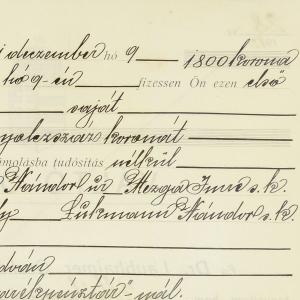 i deczember hó 9 1800 korona
hó 9-én fizessen Ön ezen első
saját
nyolczszáz koronát
ámolásba tudósitás nélkül
Nándor úr Mezga Imre s.k.
ly Lükmann Nándor s.k.
dván
takarékpénztár"-nál.